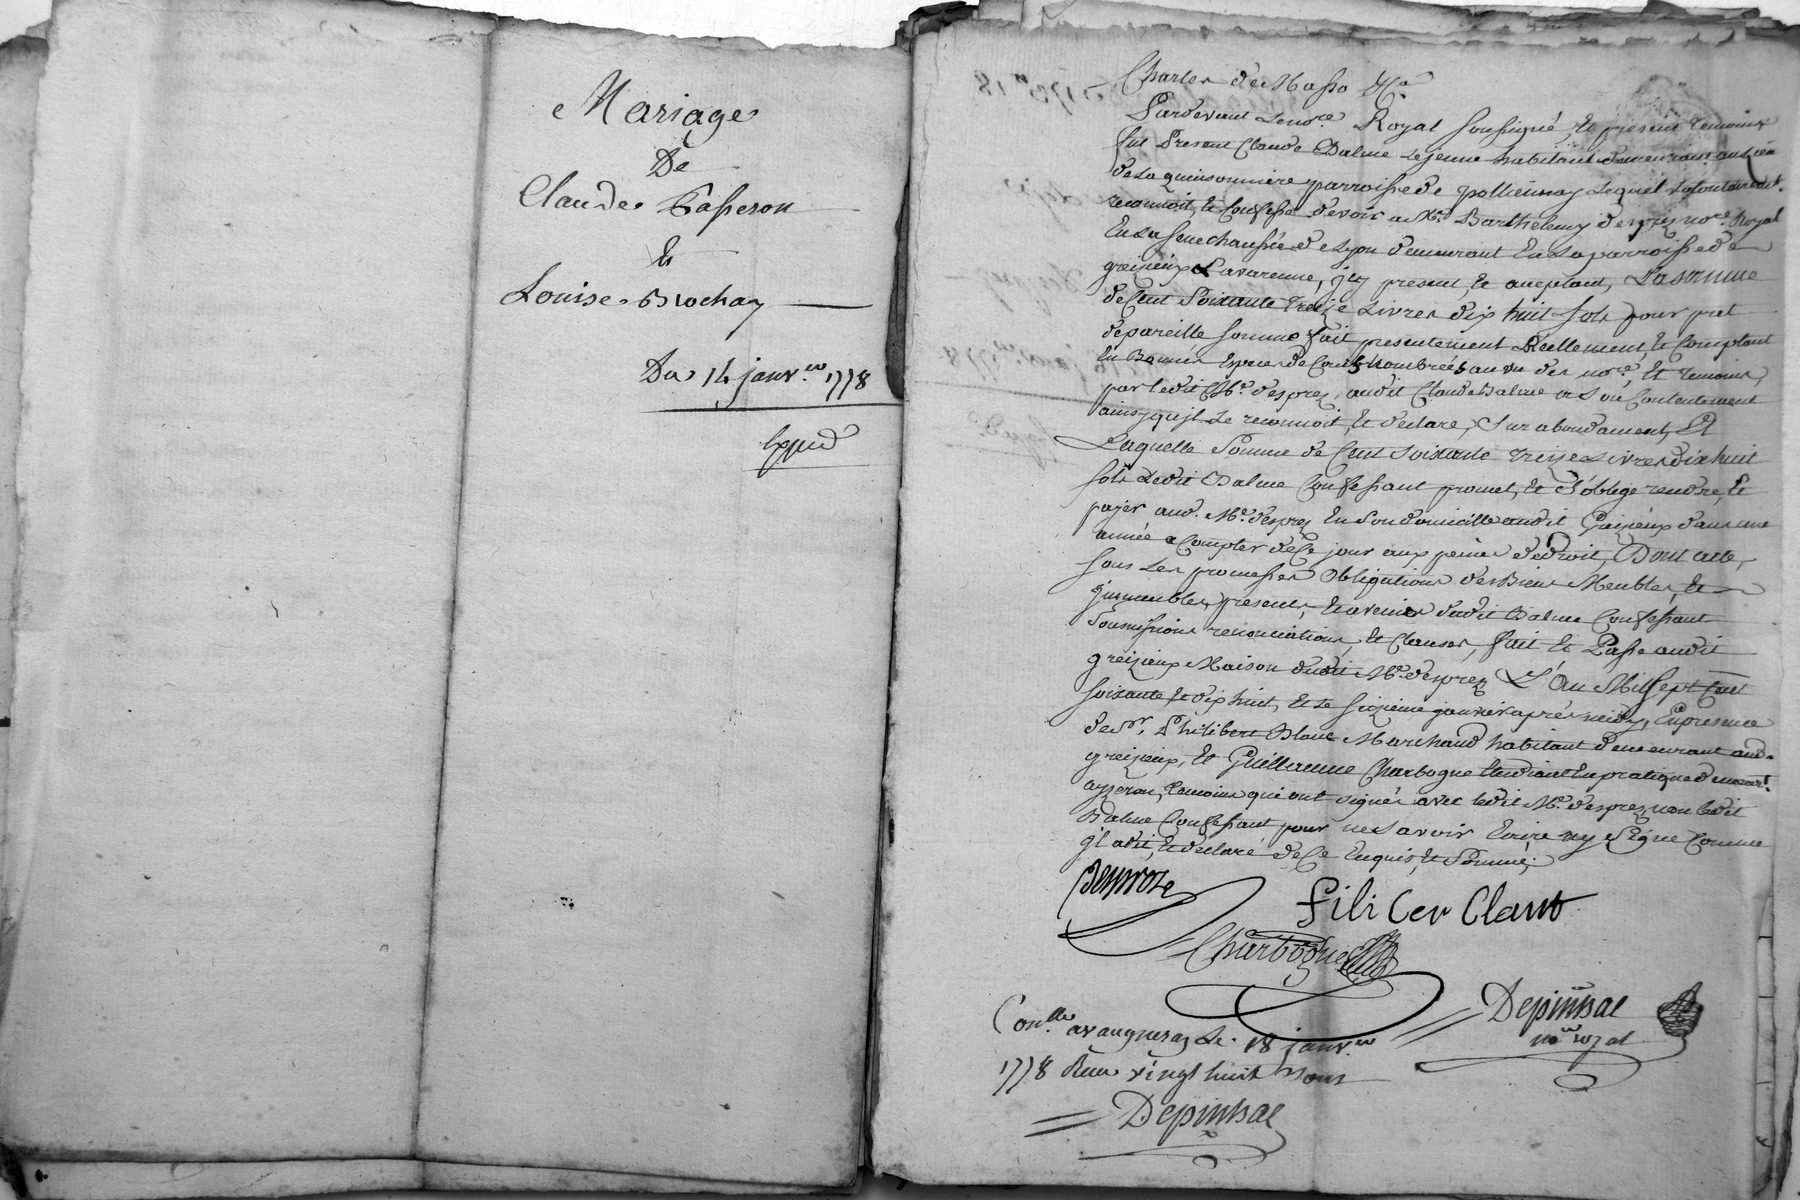 Mariage
De
Claude Passeron
Et
Louise Brochay
Du 14 janv.er 1778
Expéd
Charles de Masso &c.a
Pardevant Le no.re Royal soussigné, Et presens temoins
fut Present Claude Balme Le jeune habitant demeurant au lieu
de La quinsonniere parroisse de pollionnay Lequel Volontairement
reconnoit, Et Confesse devoir a M.e Barthelemy desprez no.re Royal
En La senechaussée de Lyon demeurant En La parroisse de
greizieux Lavarenne, jcy present, Et aceptant, La somme
de Cent Soixante treize Livres dix huit sols pour pret
de pareille somme fait presentement Reellement, Et Comptant
En Bonnes Especes de Cours nombrées au vu des no.re, Et temoins,
par ledit M.e desprez, audit Claude Balme a Son Contentement
ainsy qu'jl Le reconnoit, Et declare,
Laquelle Somme de Cent Soixante treize Livres dix huit
sols Ledit Balme Confessant promet, Et s'oblige rendre, Et
payer aud. M.e desprez En Son domicille audit Greizieux dans une
année a Compter de Ce jour aux peines de droit, Dont acte,
sous Les promesses Obligations des Biens Meubles, Et
jmmeubles, presents, Et avenirs dudit Balme Confessant
Soumissions renonciations, Et Clauses, fait Et Passé audit
greizieux Maison dudit M.e desprez L'An Mil Sept Cent
soixante Et dix huit, Et Le sixieme janvier après midy, En presence
de S.r Philibert Blanc Marchand habitant demeurant aud.
greizieux, Et Guillaume Charbogne Etudiant En pratique demeurant
ayzeron, temoins qui ont signés avec ledit M.e desprez non ledit
Balme Confessant pour ne Savoir Ecrire ny Signer Comme
jl a dit, Et declaré de Ce Enquis, Et Sommé.
Desprez
fili Cer Clant
Charbogne
Depinhac
no.re royal
Con.lle a vaugneray Le 18 janv.er
1778 Reçu vingt huit sous
Depinhac